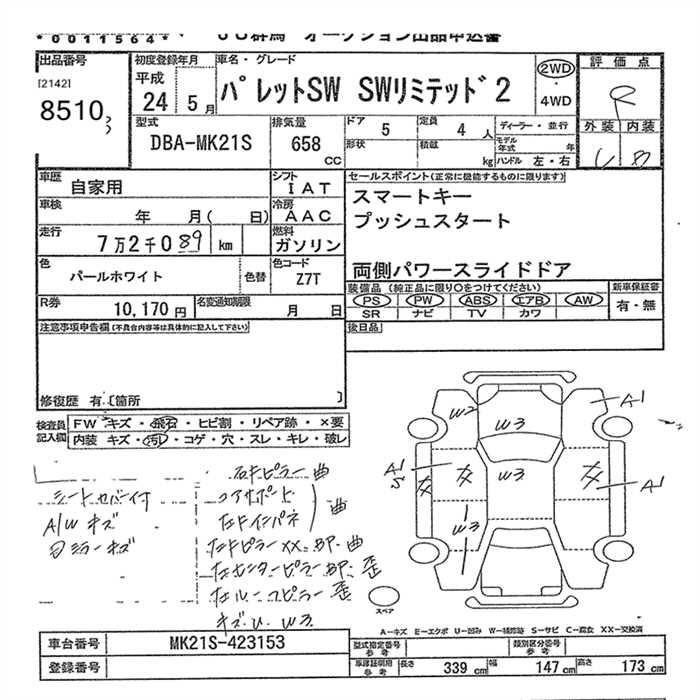 *0011564*
JU群馬 オークション出品申込書
出品番号
[2142]
8510
初度登録年月
平成
24年 5月
車名・グレード
パレットSW SWリミテッド2
2WD
・4WD
評価点
R
外装 内装
型式
DBA-MK21S
排気量
658
CC
ドア 5
定員 4人
形状
積載 kg
ディーラー・並行
モデル年式 年
ハンドル 左・右
車歴
自家用
シフト
IAT
車検
年 月( 日)
冷房
AAC
走行
7万2千089 km
燃料
ガソリン
色
パールホワイト
色替
色コード
Z7T
R券
10,170円
名変通知期限
月 日
セールスポイント(正常に機能するものに限ります)
スマートキー
プッシュスタート
両側パワースライドドア
装備品(純正品に限り○をつけてください)
PS PW ABS エアB AW
SR ナビ TV カワ
新車保証書
有・無
注意事項申告欄(不具合内容等は具体的に記入して下さい)
後日品
修復歴 有 [箇所 ]
検査員記入欄
FW キズ・飛石・ヒビ割・リペア跡・×要
内装 キズ・汚レ・コゲ・穴・スレ・キレ・破レ
シートカバー付
A/W キズ
右キピラー 曲
コアサポート
左キインパネ
曲
左センターピラーBP・歪
キズ・U・W3
W2
W3
A1
A1
W3
A1
W3
スペア
A-キズ E-エクボ U-凹み W-補修跡 S-サビ C-腐食 XX-交換済
車台番号
MK21S-423153
登録番号
型式指定番号 参考
類別区分番号 参考
車庫証明用 参考
長さ 339cm 幅 147cm 高さ 173cm